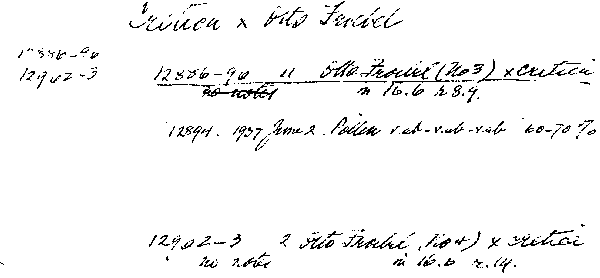 Critica x Otto Froebel
12886-96
12902-3
12886-96 11 Otto Froebel (No 3) x critica
no notes in 16.6 r 8.9.
12894. 1937 June 2. Pollen vab-vab-vab 60-70%
12902-3 2 Otto Froebel (No 4) x critica
no notes in 16.6 r.14.